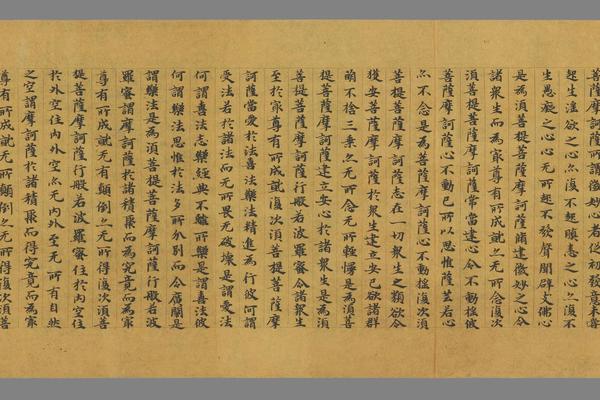 菩薩摩訶薩所謂微妙心者從初發意未曾
起生婬欲之心亦復不起瞋恚之心亦復不
生愚癡之心心无所起不發聲聞辟支佛心
是為須菩提菩薩摩訶薩建微妙之心令
諸眾生而為家尊有所成就亦无所念復次
須菩提菩薩摩訶薩常當建心令不動搖彼
菩薩摩訶薩心不動已所以思惟薩芸若心
亦不念是為菩薩摩訶薩心不動搖復次須
菩提菩薩摩訶薩志在一切眾生之類欲令
獲安菩薩摩訶薩於眾生建立安已欲諸群
萌不捨三乘亦无所念无所輕慢是為須菩
提菩薩摩訶薩建立安心於諸眾生是為須
菩提菩薩摩訶薩行般若波羅蜜令諸眾生
至於家尊有所成就復次須菩提菩薩摩
訶薩當愛於法喜法樂法精進為行彼何謂
受法若於諸法而无所畏无破壞是謂愛法
何謂喜法志樂經典不離所樂是謂喜法彼
何謂樂法思惟於法多所分別而令廣聞是
謂樂法是為須菩提菩薩摩訶薩行般若波
羅蜜謂摩訶薩於諸積聚而為究竟而為家
尊有所成就无所顛倒亦无所得復次須菩
提菩薩摩訶薩行般若波羅蜜住於內空住
於外空住內外空亦无內外至无所有自然
之空謂摩訶薩於諸積聚而得究竟而為家
尊有所成就无所顛倒亦无所得復次須菩